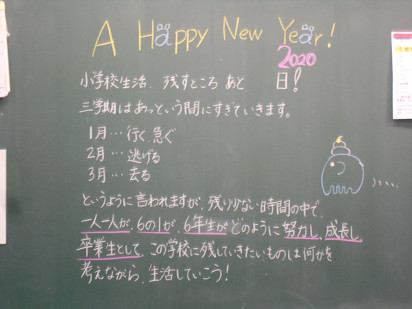 A Happy New Year!
2020
小学校生活、残すところ あと 日!
三学期はあっという間にすぎていきます。
1月…行く、急ぐ
2月…逃げる
3月…去る
というように言われますが、残り少ない時間の中で、
一人一人が、6の1が、6年生がどのように努力し、成長し、
卒業生として、この学校に残していきたいものは何かを
考えながら、生活していこう!